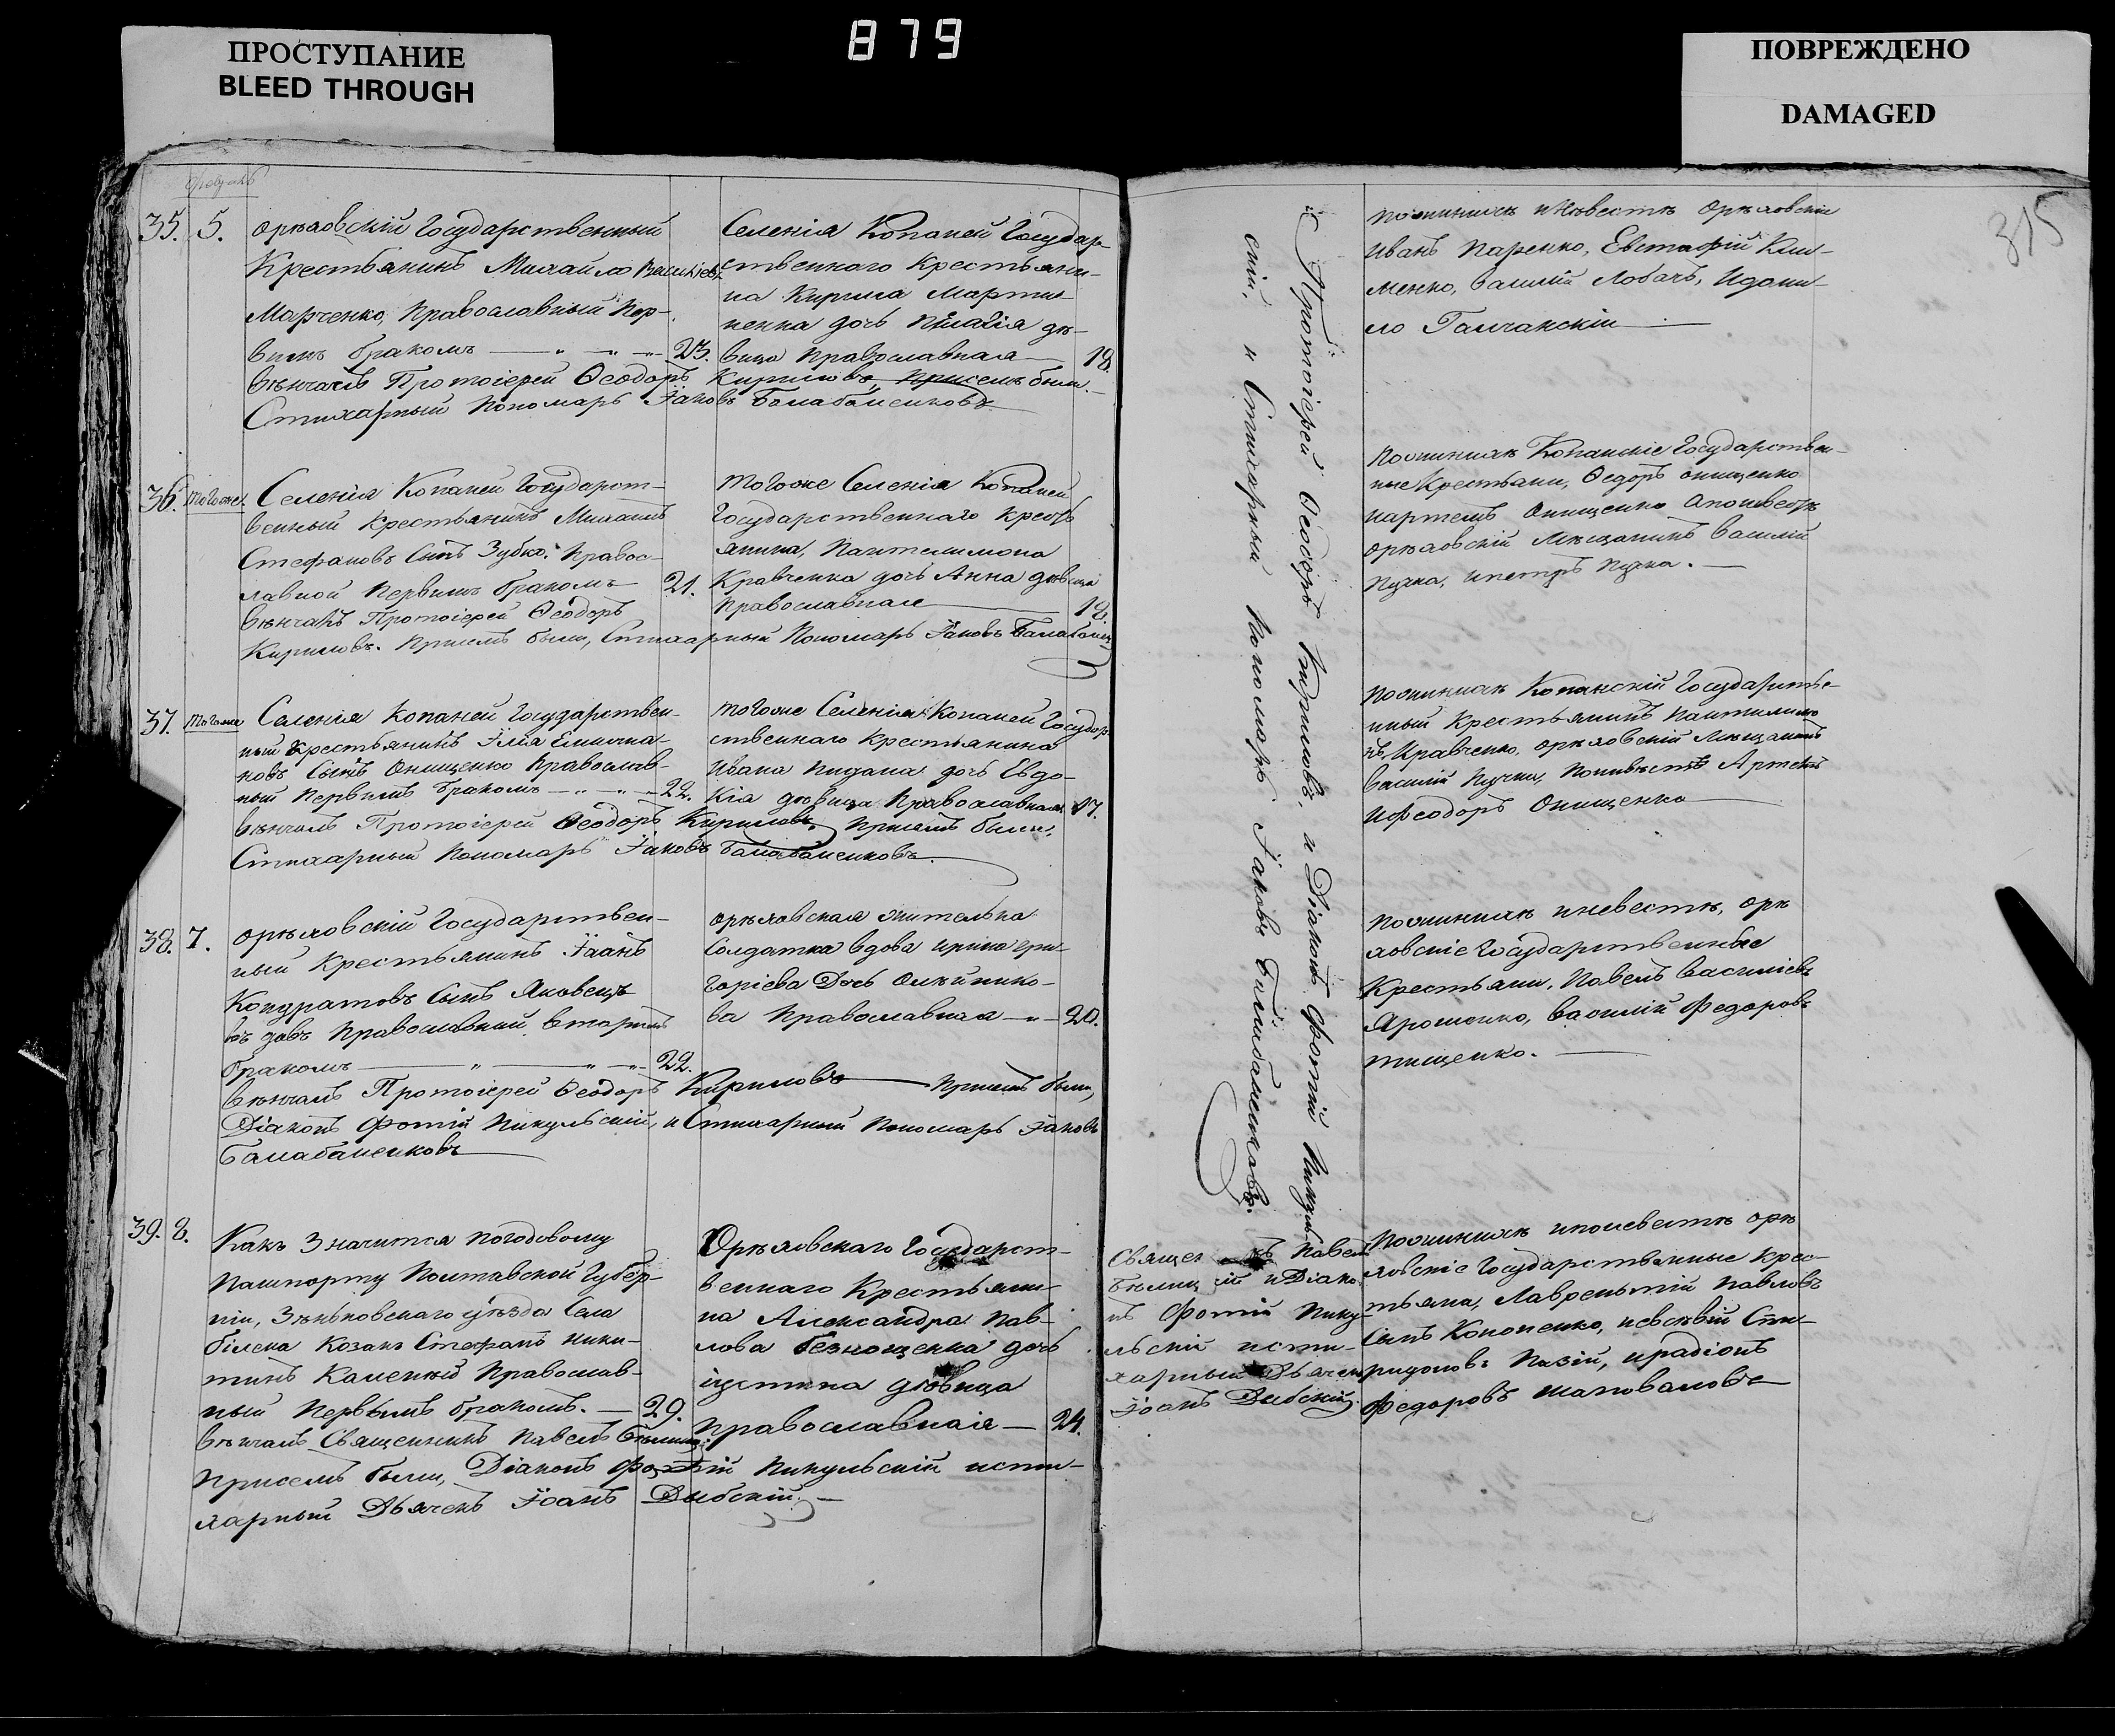 879
ПРОСТУПАНИЕ
BLEED THROUGH
ПОВРЕЖДЕНО
DAMAGED
315
35. 5.
орѣховскій Государственный
Крестьянинъ Михаило
Марченко, Православный Пер-
вымъ бракомъ 23.
вѣнчалъ Протоіерей Ѳеодоръ Кириловъ, присемъ были
Стихарный Пономарь Іаковъ Балабаненковъ
Селенія Копаней Государ-
ственнаго Крестьяни-
на Кирила Марти-
ненка дочь дѣ-
вица Православная 18.
36. тогоже
Селенія Копаней Государст-
венный Крестьянинъ Михаилъ
Стефановъ Сынъ Зубко, Правос-
лавной Первымъ бракомъ 21.
вѣнчалъ Протоіерей Ѳеодоръ
Кириловъ. Присемъ были, Стихарный Пономарь Іаковъ
тогоже Селенія Копаней
Государственнаго Крест
янина, Пантелимона
Кравченка дочь Анна дѣвица
Православная 18
37. тогоже
Селенія Копаней Государствен-
ный Крестьянинъ Илія
новъ Сынъ Онищенко Православ-
ный Первымъ бракомъ 22.
вѣнчалъ Протоіерей Ѳеодоръ Кириловъ, Присемъ были,
Стихарный Пономарь Іаковъ Балабаненковъ.
тогоже Селенія Копаней Государ
ственнаго Крестьянина
Ивана дочь Евдо-
кія дѣвица Православная 17.
38. 7.
орѣховскій Государствен-
ный Крестьянинъ Іоанъ
Кондратовъ Сынъ Яковецъ
въдовъ Православный вторымъ
бракомъ 22.
вѣнчалъ Протоіерей Ѳеодоръ Кириловъ Присемъ были,
Діаконъ Фотій Пикульскій, и Стихарный Пономарь Іаковъ
Балабаненковъ
орѣховская жителька
Солдатка вдова ирина гри-
горіева Дочь Олейнико-
ва Православная 20.
39. 8.
Какъ Значится погодовому
Пашпорту Полтавской Губер-
ніи, Зѣньковскаго уѣзда Села
Козакъ Стефанъ Ники-
тинъ Православ-
ный Первымъ бракомъ. 29.
вѣнчалъ Священникъ Павелъ
Присемъ были, Діаконъ Фотій Пикульскій исти-
харный Дьячекъ Іоанъ Дибскій
Орѣховскаго Государст-
веннаго Крестьяни
на Александра Пав-
лова дочь
іустина дѣвица
Православная 24.
Протоіерей Ѳеодоръ Кириловъ, и Діаконъ Фотій Пикуль
скій, и Стихарный Пономарь Іаковъ Балабаненковъ.
Павел
и Діако
нъ Фотій Пику-
льскій исти-
харный Дьячек
Іоанъ Дибскій
пожинихѣ иневестѣ орѣховскіи
Иванъ Паренко, Евстафій Кли-
менко, василій Лобачъ, Идани-
ло Галчанскіи
пожинихѣ Копанскіе Государствен-
ные Крестьяни, Ѳедоръ онищенко
иартемъ Онищенко апоневестѣ
орѣховскій Мещанинъ василій
Пучка, ипетръ Пучка.
пожинихѣ Копанскій Государстве-
нный Крестьянинъ Пантилимо
нъ Кравченко, орѣховскій Мещанинъ
василій Пучка, Поневестѣ Артемъ
иФеодоръ Онищенко
пожинихѣ иневестѣ, орѣ
ховскіе Государственные
Крестьяни, Павелъ василіевъ
Ярошенко, василій Федоровъ
тищенко.
пожинихѣ ипоневестѣ орѣ
ховскіе Государственные Крес-
тьяна, Лаврентій Павловъ
Сынъ Кононенко, Спи-
ридоновъ ирадіонъ
Федоровъ Шаповаловъ